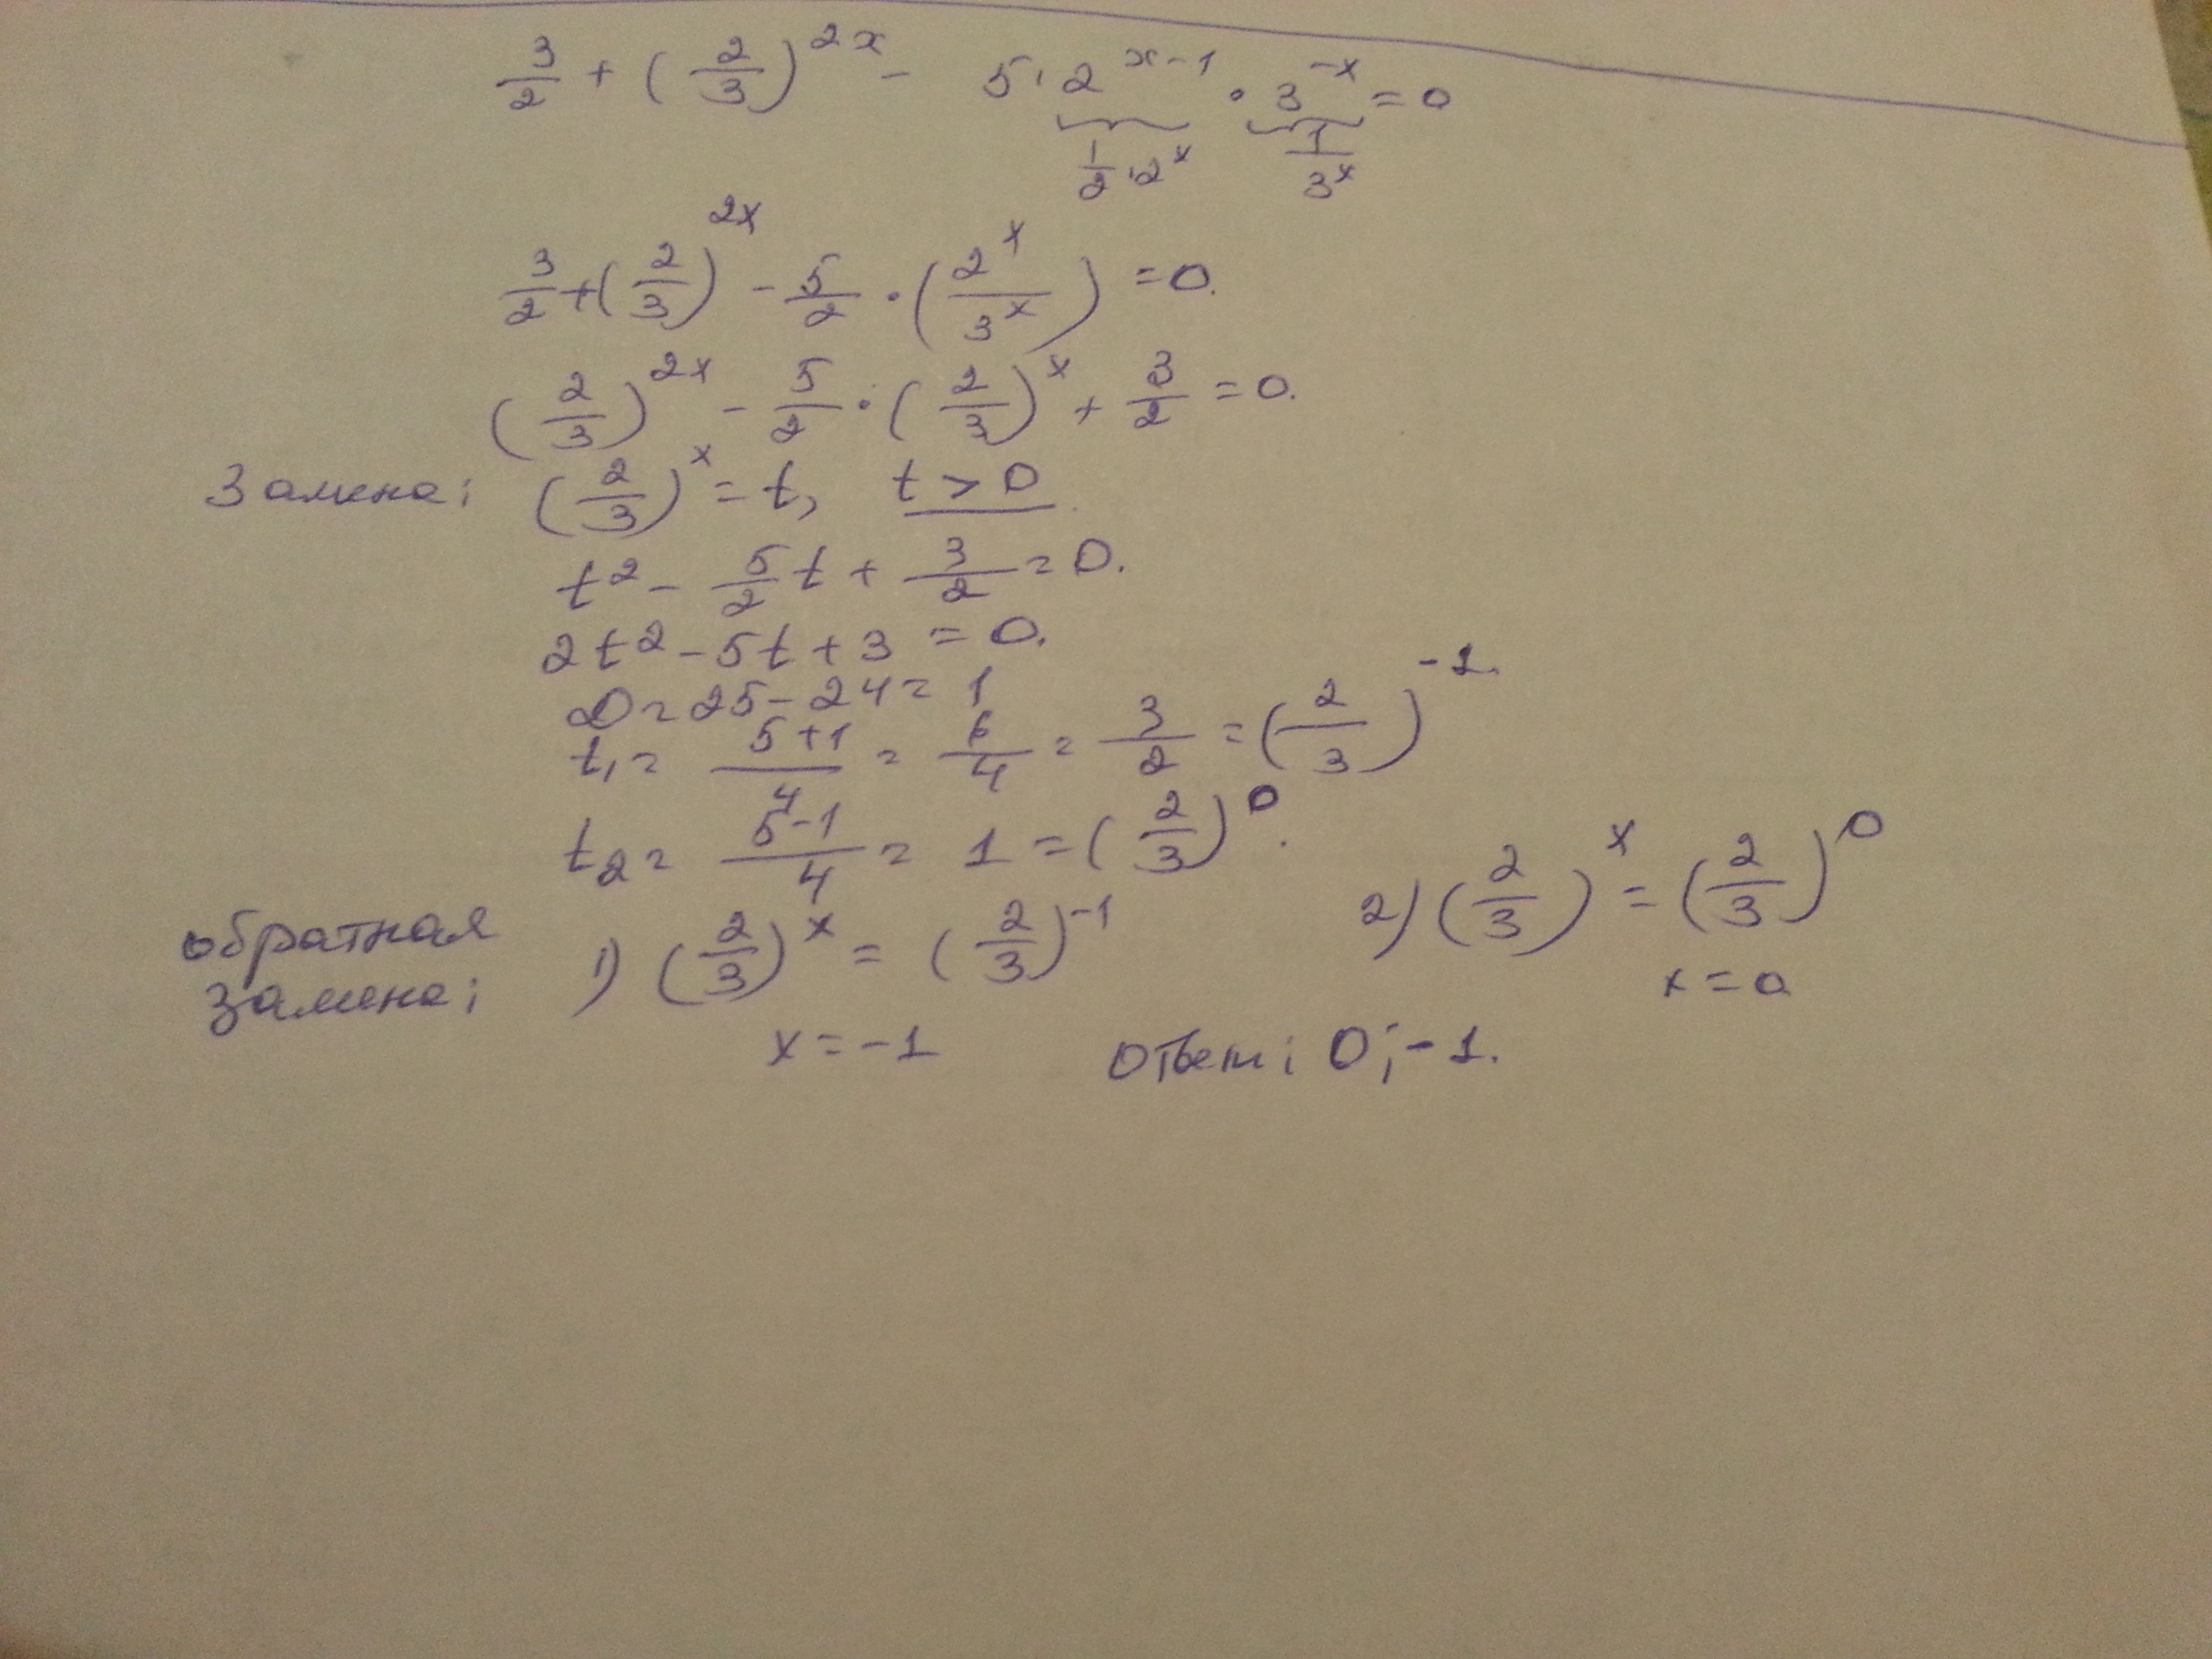 3/2 + (2/3)^2x - 5·2^x-1 · 3^-x = 0
1/2·2^x 1/3^x
3/2 + (2/3)^2x - 5/2 · (2^x/3^x) = 0.
(2/3)^2x - 5/2 · (2/3)^x + 3/2 = 0.
Замена: (2/3)^x = t, t > 0
t² - 5/2 t + 3/2 = 0.
2t² - 5t + 3 = 0.
D = 25 - 24 = 1
t₁ = 5+1/4 = 6/4 = 3/2 = (2/3)^-1.
t₂ = 5-1/4 = 1 = (2/3)^0.
обратная замена: 1) (2/3)^x = (2/3)^-1 2) (2/3)^x = (2/3)^0
x = -1 x = 0
Ответ: 0; -1.